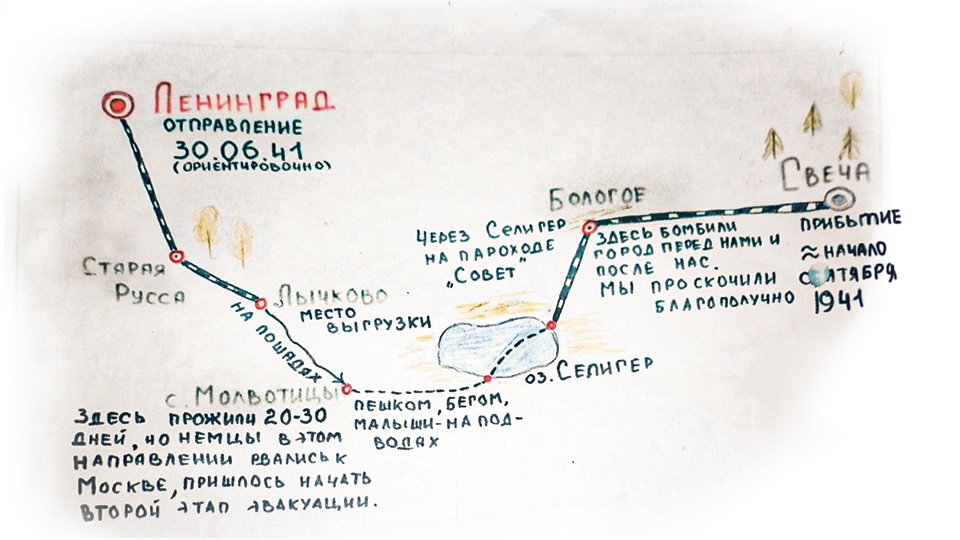 ЛЕНИНГРАД
ОТПРАВЛЕНИЕ
30.06.41
(ОРИЕНТИРОВОЧНО)
СВЕЧА
ПРИБЫТИЕ
≈ НАЧАЛО
СЕНТЯБРЯ
1941
БОЛОГОЕ
ЗДЕСЬ БОМБИЛИ
ГОРОД ПЕРЕД НАМИ И
ПОСЛЕ НАС.
МЫ ПРОСКОЧИЛИ
БЛАГОПОЛУЧНО
ЧЕРЕЗ СЕЛИГЕР
НА ПАРОХОДЕ
„СОВЕТ"
СТАРАЯ
РУССА
ЛЫЧКОВО
МЕСТО
ВЫГРУЗКИ
НА ЛОШАДЯХ
ОЗ. СЕЛИГЕР
С. МОЛВОТИЦЫ
ПЕШКОМ, БЕГОМ,
МАЛЫШИ-НА ПОД-
ВОДАХ
ЗДЕСЬ ПРОЖИЛИ 20-30
ДНЕЙ, НО НЕМЦЫ В ЭТОМ
НАПРАВЛЕНИИ РВАЛИСЬ К
МОСКВЕ, ПРИШЛОСЬ НАЧАТЬ
ВТОРОЙ ЭТАП ЭВАКУАЦИИ.